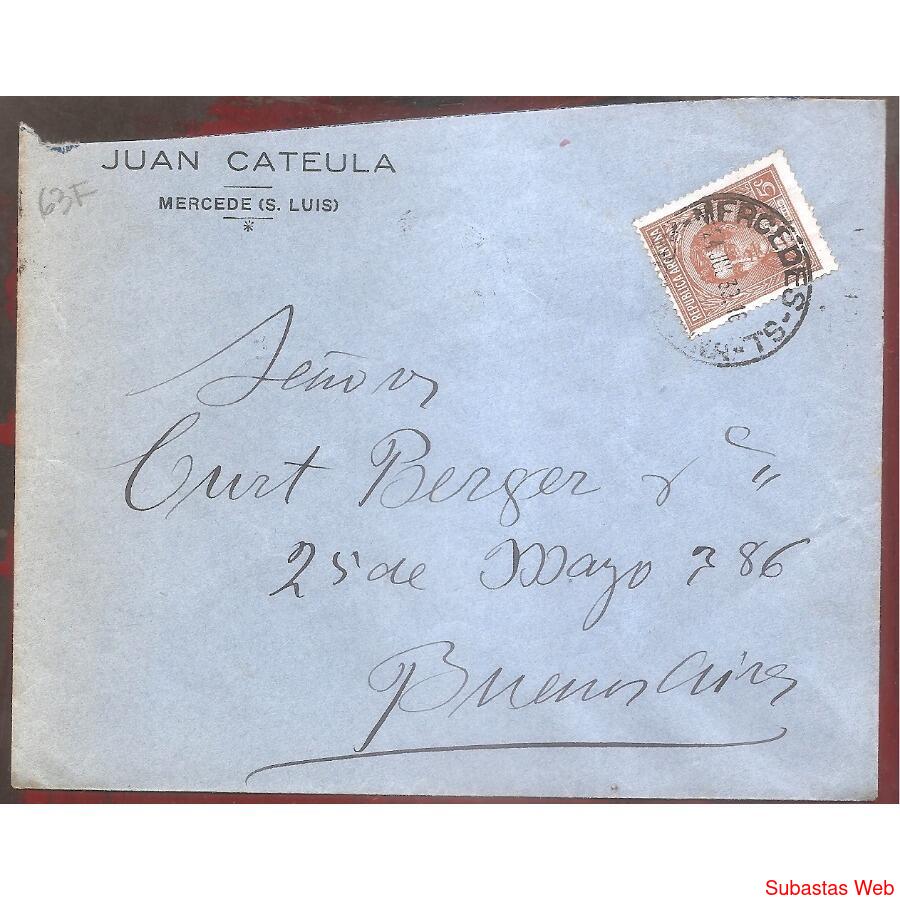 JUAN CATEULA
MERCEDE (S. LUIS)
*
63F
5
REPUBLICA ARGENTINA
MERCEDES-S.L.-
JUN
Señor
Curt Berger y Cª
25 de Mayo 386
Buenos Aires
Subastas Web